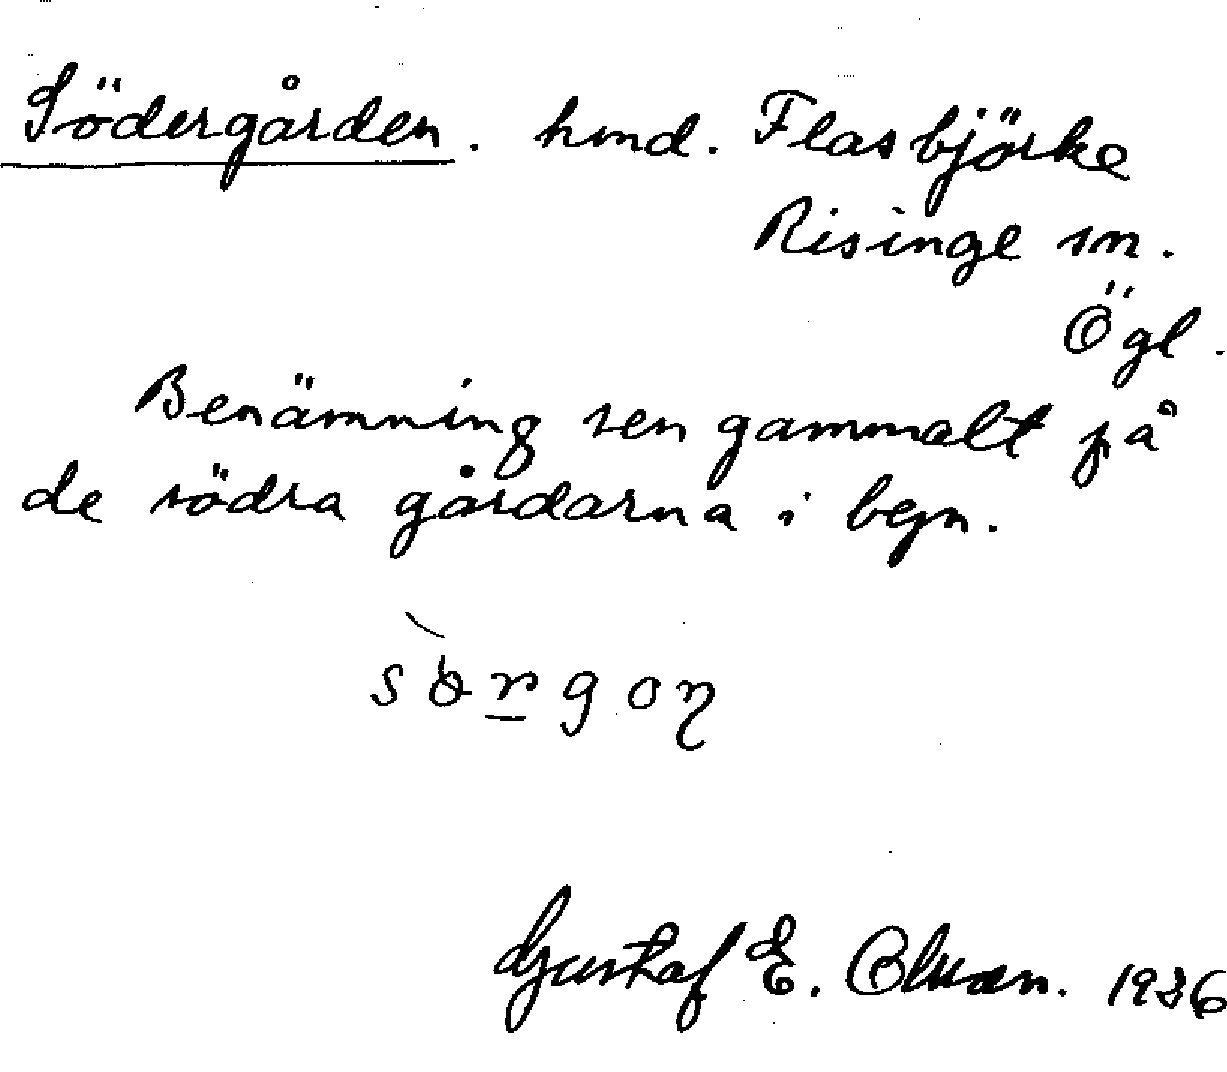 Södergården. hmd. Flasbjörke
Risinge sn.
Ögl.
Benämning sen gammalt på
de södra gårdarna i byn.
Gustaf E. 1936